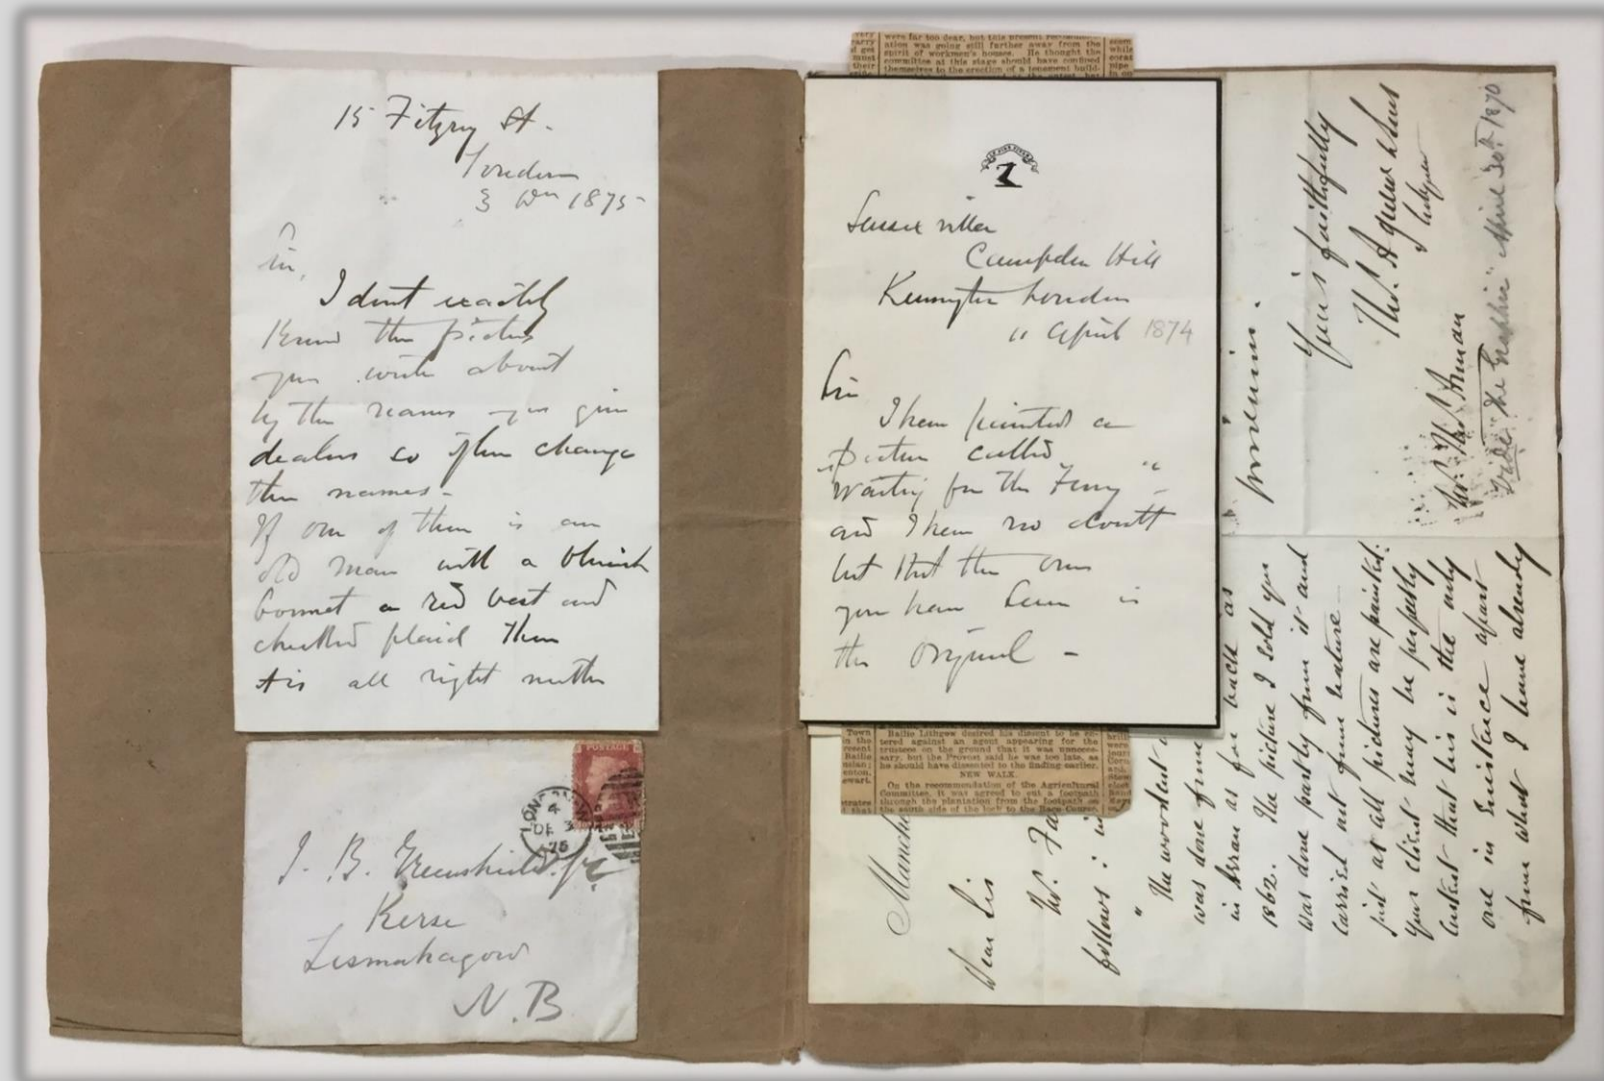 15 Fitzroy St.
London
3 Dec 1875
Sir,
I dont exactly
Know the pictures
you write about
by the names you give
dealers so often change
the names -
If one of them is an
old man with a bluish
bonnet a red vest and
checked plaid then
tis all right
POSTAGE
LONDON
4
DE 3
75
J. B. Greenshields
Kerse
Lesmahagow
N.B
were far too dear, but this present
ation was going still further away from the
spirit of workmen's houses. He thought the
committee at this stage should have confined
themselves to the erection of a tenement build-
Sussex villa
Campden Hill
Kensington London
11 April 1874
Sir
I have painted a
Picture called
"Waiting for the Ferry" -
and I have no doubt
but that the one
you have seen is
the Original -
Bailie Lithgow desired his dissent to be en-
tered against an agent appearing for the
trustees on the ground that it was unneces-
sary, but the Provost said he was too late, as
he should have dissented to the finding earlier.
NEW WALK.
On the recommendation of the Agricultural
Committee, it was agreed to cut a footpath
through the plantation from the footpath on
the south side of the loch to the Race Course,
Dear Sir
Mr. Fa
follows : in
"The woodcut
was done from
in Arran as far back as
1862. The picture I sold you
was done partly from it and
carried out from nature -
just as all pictures are painted.
Your client may be perfectly
content that his is the only
one in existence apart
from what I have already
Yours faithfully
Thos. Agnew & Sons
Vide "The Graphic" April 30th 1870